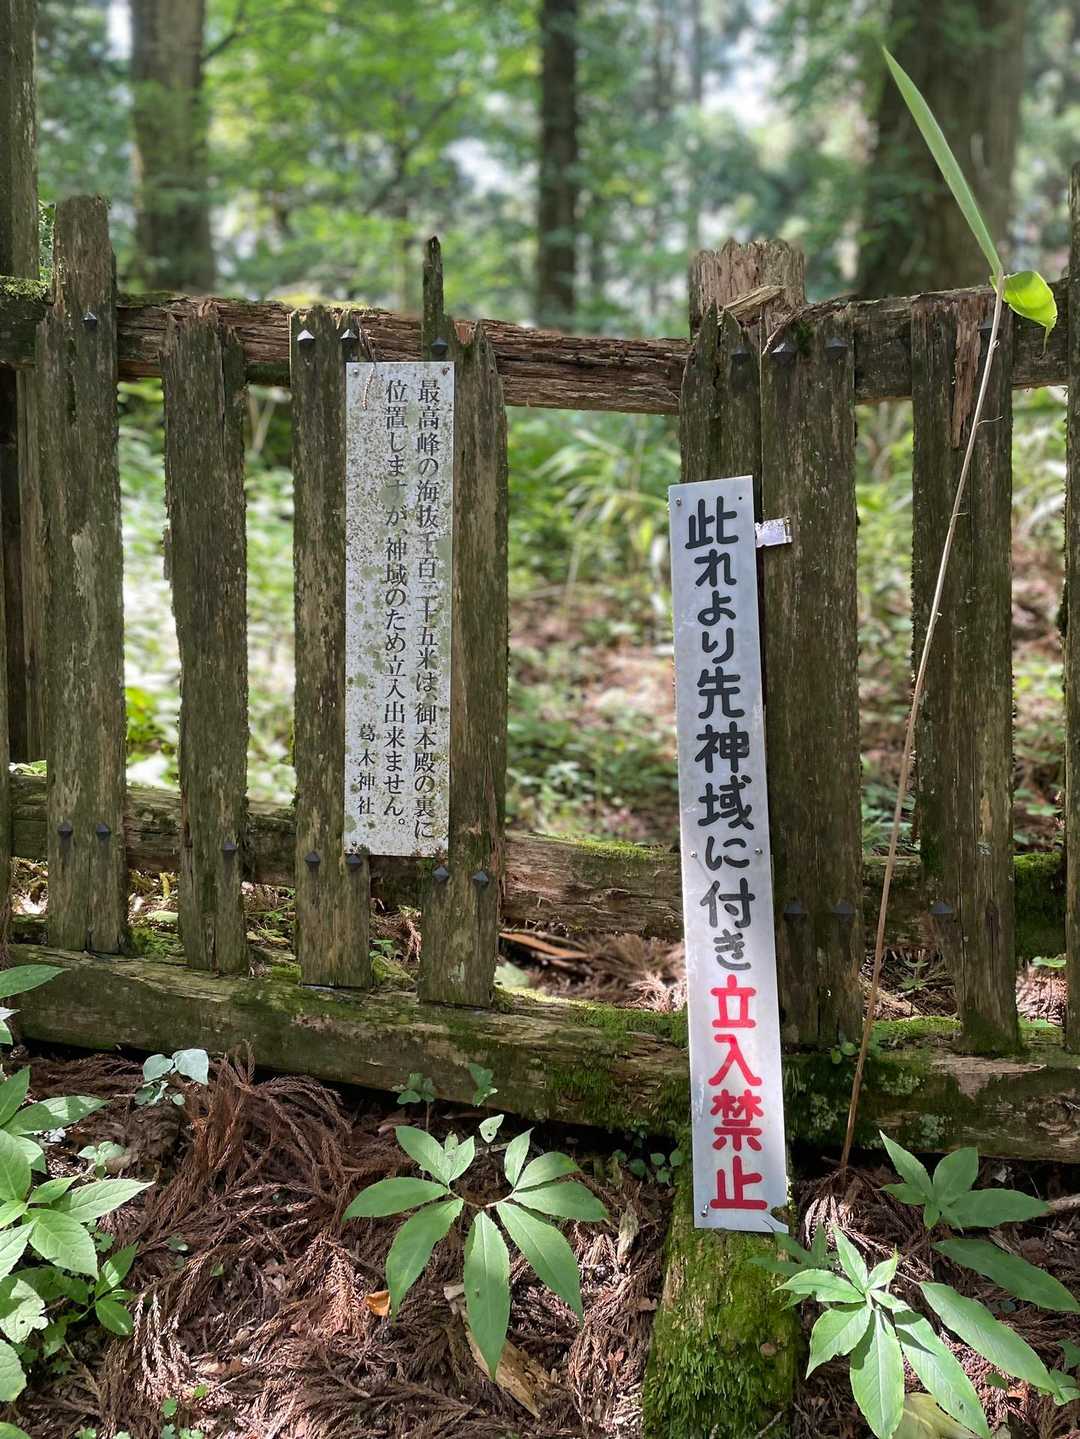 最高峰の海抜千百二十五米は、御本殿の裏に
位置しますが 神域のため立入出来ません。
葛木神社
此れより先神域に付き立入禁止